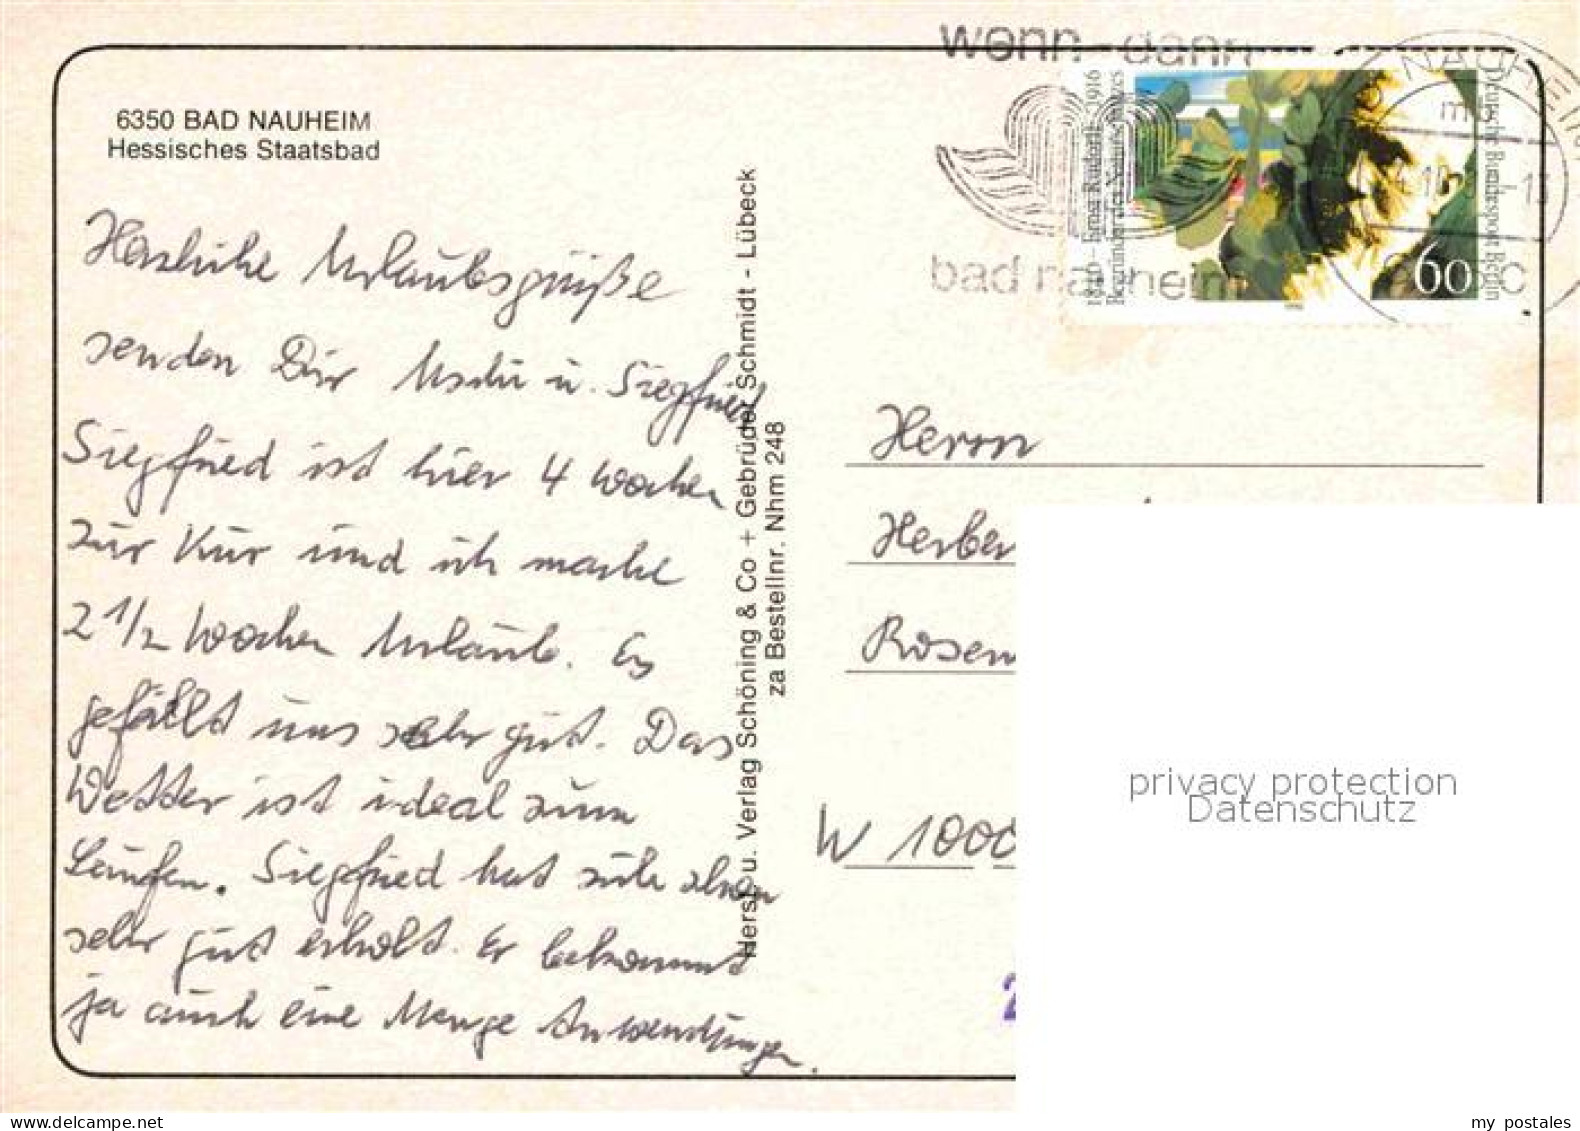 wenn-dann
bad nauheim
NAUHEIM
1840 - Ernst Rudorff - 1916
Begründer des Naturschutzes
Deutsche Bundespost Berlin
60
6350 BAD NAUHEIM
Hessisches Staatsbad
Herzliche Urlaubsgrüße
senden Dir Uschi u. Siegfried
Siegfried ist hier 4 Wochen
zur Kur und ich mache
2 1/2 Wochen Urlaub. Es
gefällt uns sehr gut. Das
Wetter ist ideal zum
Laufen. Siegfried hat sich schon
sehr gut erholt. Er bekommt
ja auch eine Menge Anwendungen.
Herst. u. Verlag Schöning & Co + Gebrüder Schmidt - Lübeck
za Bestellnr. Nhm 248
Herrn
Herber
Rosen
W 1000
privacy protection
Datenschutz
my postales